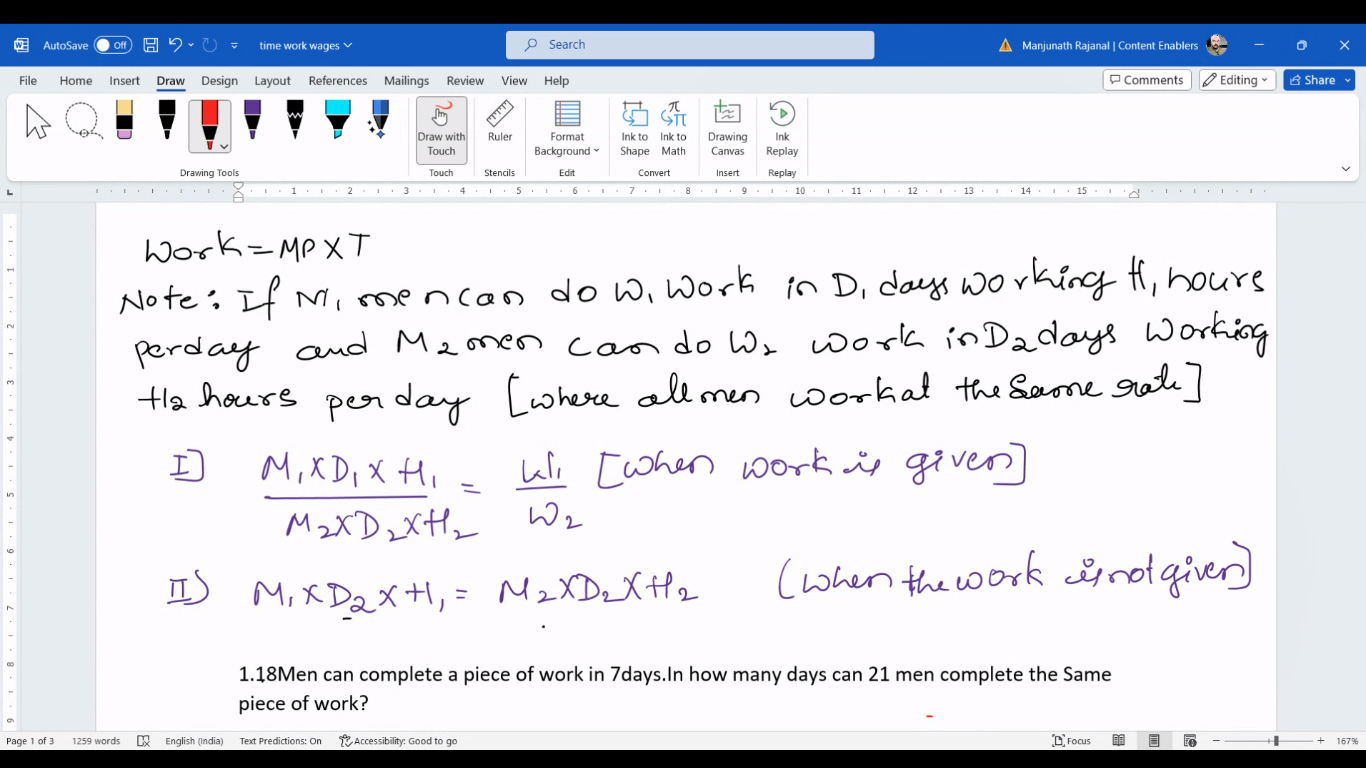 AutoSave Off time work wages Search Manjunath Rajanal | Content Enablers
File Home Insert Draw Design Layout References Mailings Review View Help Comments Editing Share
Draw with Touch Ruler Format Background Ink to Shape Ink to Math Drawing Canvas Ink Replay
Drawing Tools Touch Stencils Edit Convert Insert Replay
1 2 3 4 5 6 7 8 9 10 11 12 13 14 15
Work = MP X T
Note: If M1 men can do W1 Work in D1 days working H1 hours
perday and M2 men can do W2 work in D2 days working
H2 hours perday [where all men work at the same rate]
I] M1 X D1 X H1 = W1 [when work is given]
M2 X D2 X H2 W2
II) M1 X D2 X H1 = M2 X D2 X H2 (when the work is not given]
1.18Men can complete a piece of work in 7days.In how many days can 21 men complete the Same
piece of work?
Page 1 of 3 1259 words English (India) Text Predictions: On Accessibility: Good to go Focus 167%